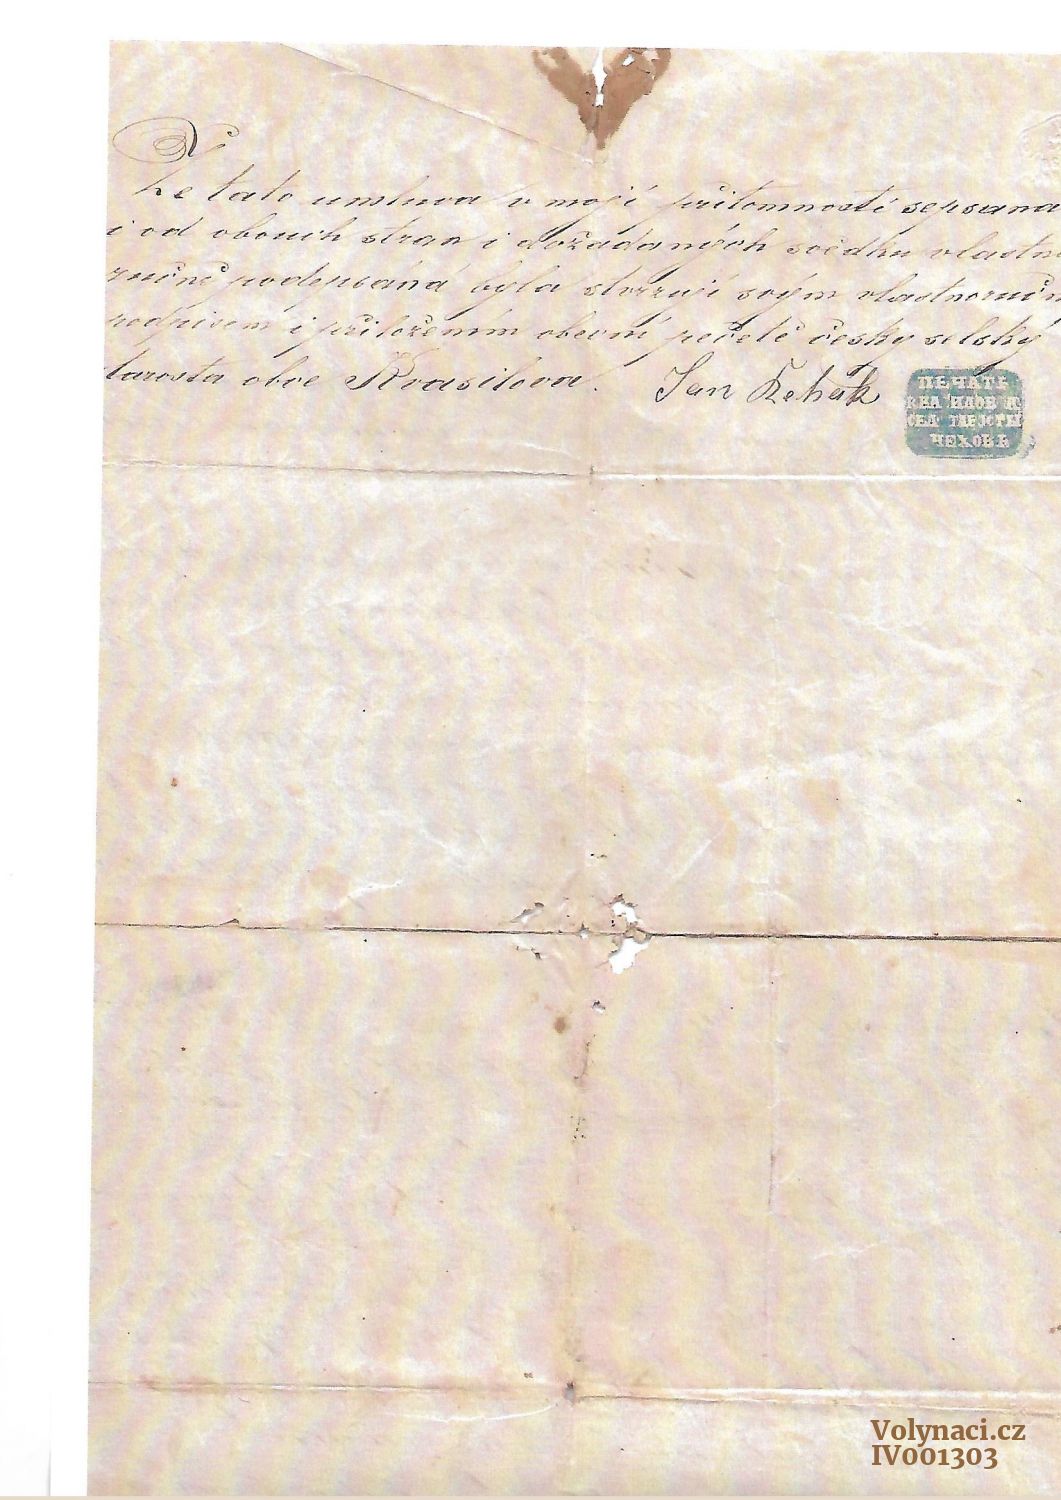 Že tato umluva v mojí přítomností sepsaná
i od obouch stran i dožádaných svědku vlastno
ručně podepsáná byla stvrzují svým vlastnoručn
podpisem i přiložením obecní pečetě česky selský
tarosta obce Kvasilova. Jan Řehák
ПЕЧАТЬ
ЧЕХОВЪ
Volynaci.cz
IV001303